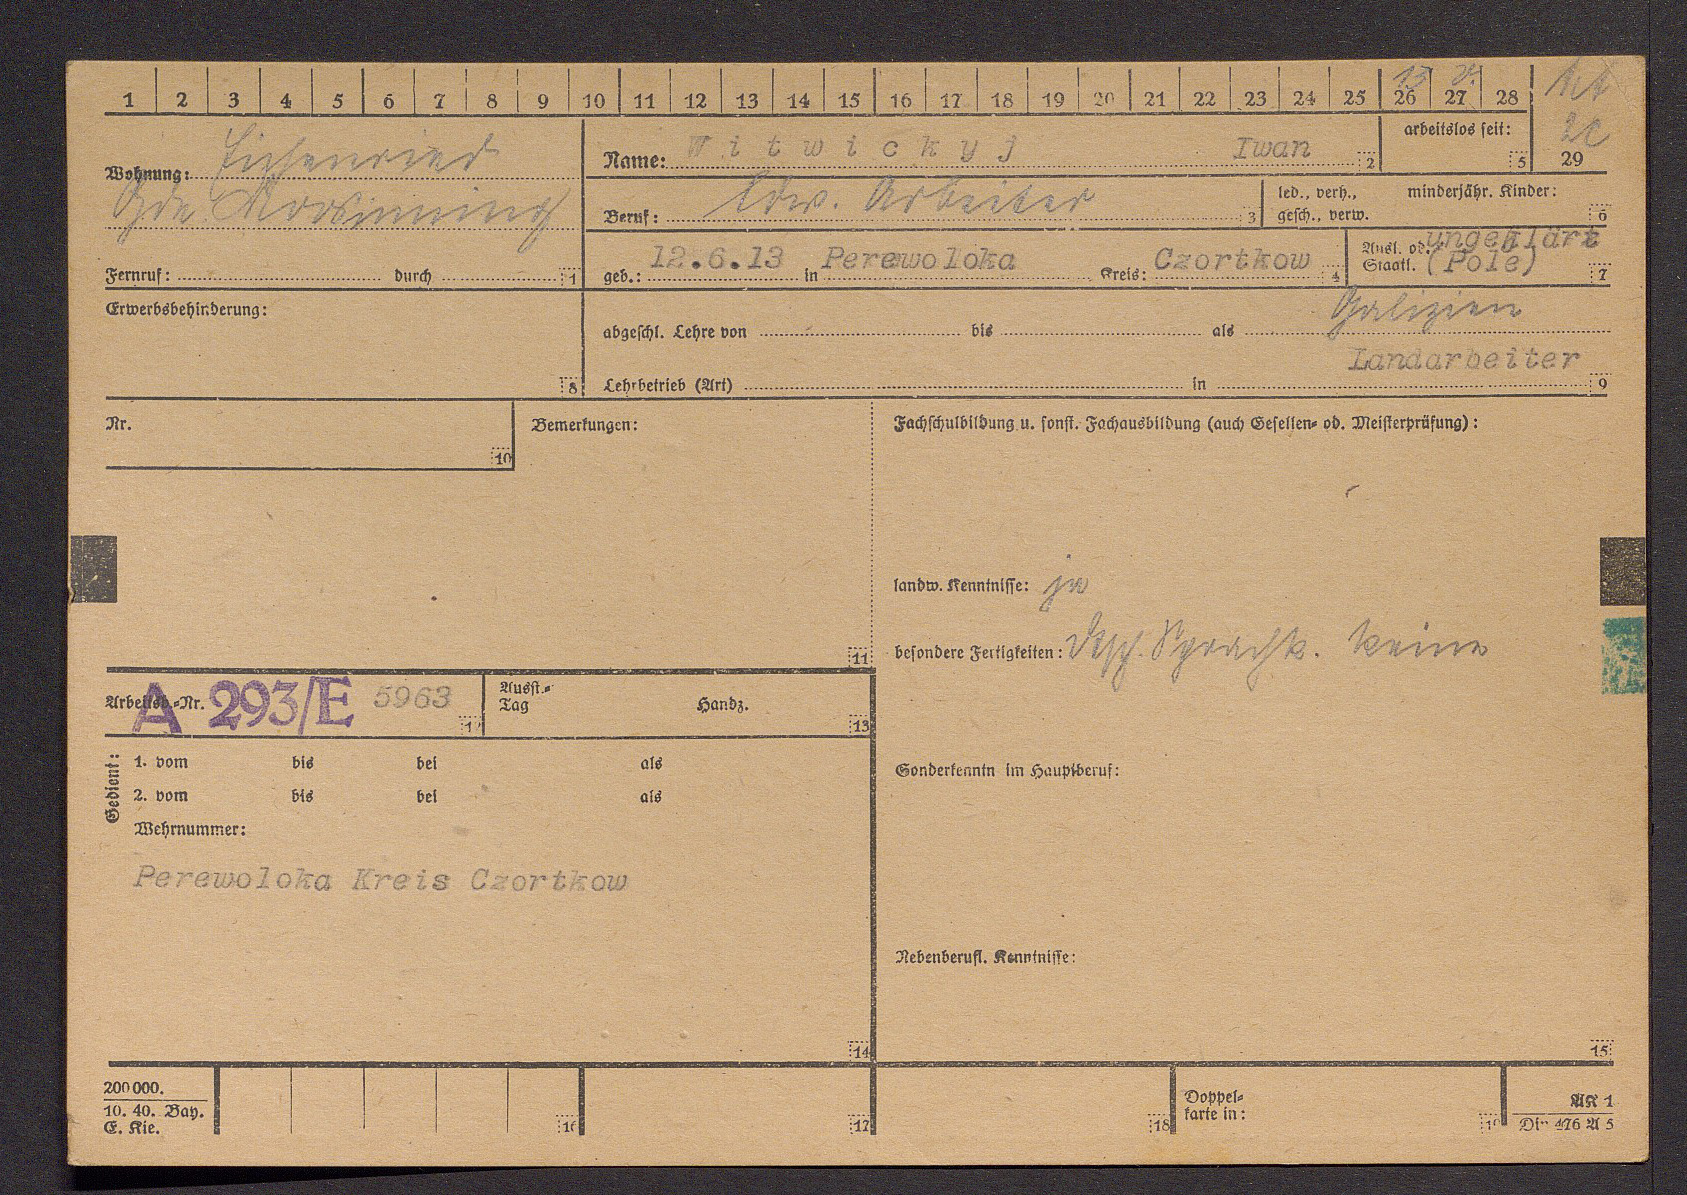 1 2 3 4 5 6 7 8 9 10 11 12 13 14 15 16 17 18 19 20 21 22 23 24 25 26 27 28
13
Wohnung: Eichenried
Gde. Moosinning
Fernruf: durch 1
Name: Witwickyj Iwan 2
arbeitslos seit: 5
29
Beruf: ldw. Arbeiter 3
led., verh., minderjähr. Kinder:
gesch., verw. 6
geb.: 12.6.13 in Perewoloka Kreis: Czortkow 4
Ausl. od. ungeklärt
Staatl. (Pole) 7
Erwerbsbehinderung:
8
Galizien
abgeschl. Lehre von bis als
Landarbeiter
Lehrbetrieb (Art) in 9
Nr.
10
Bemerkungen:
11
Fachschulbildung u. sonst. Fachausbildung (auch Gesellen- od. Meisterprüfung):
landw. Kenntnisse: ja
besondere Fertigkeiten: Dtsch. Sprachk. keine
Arbeitsb.-Nr. A 293/E 5963 12
Ausst.-
Tag Handz.
13
Gedient:
1. vom bis bei als
2. vom bis bei als
Wehrnummer:
Perewoloka Kreis Czortkow
14
Sonderkenntn im Hauptberuf:
Nebenberufl. Kenntnisse:
15
200 000.
10. 40. Bay.
E. Kie.
16
17
18
Doppel-
karte in:
19
AK 1
Din 476 A 5